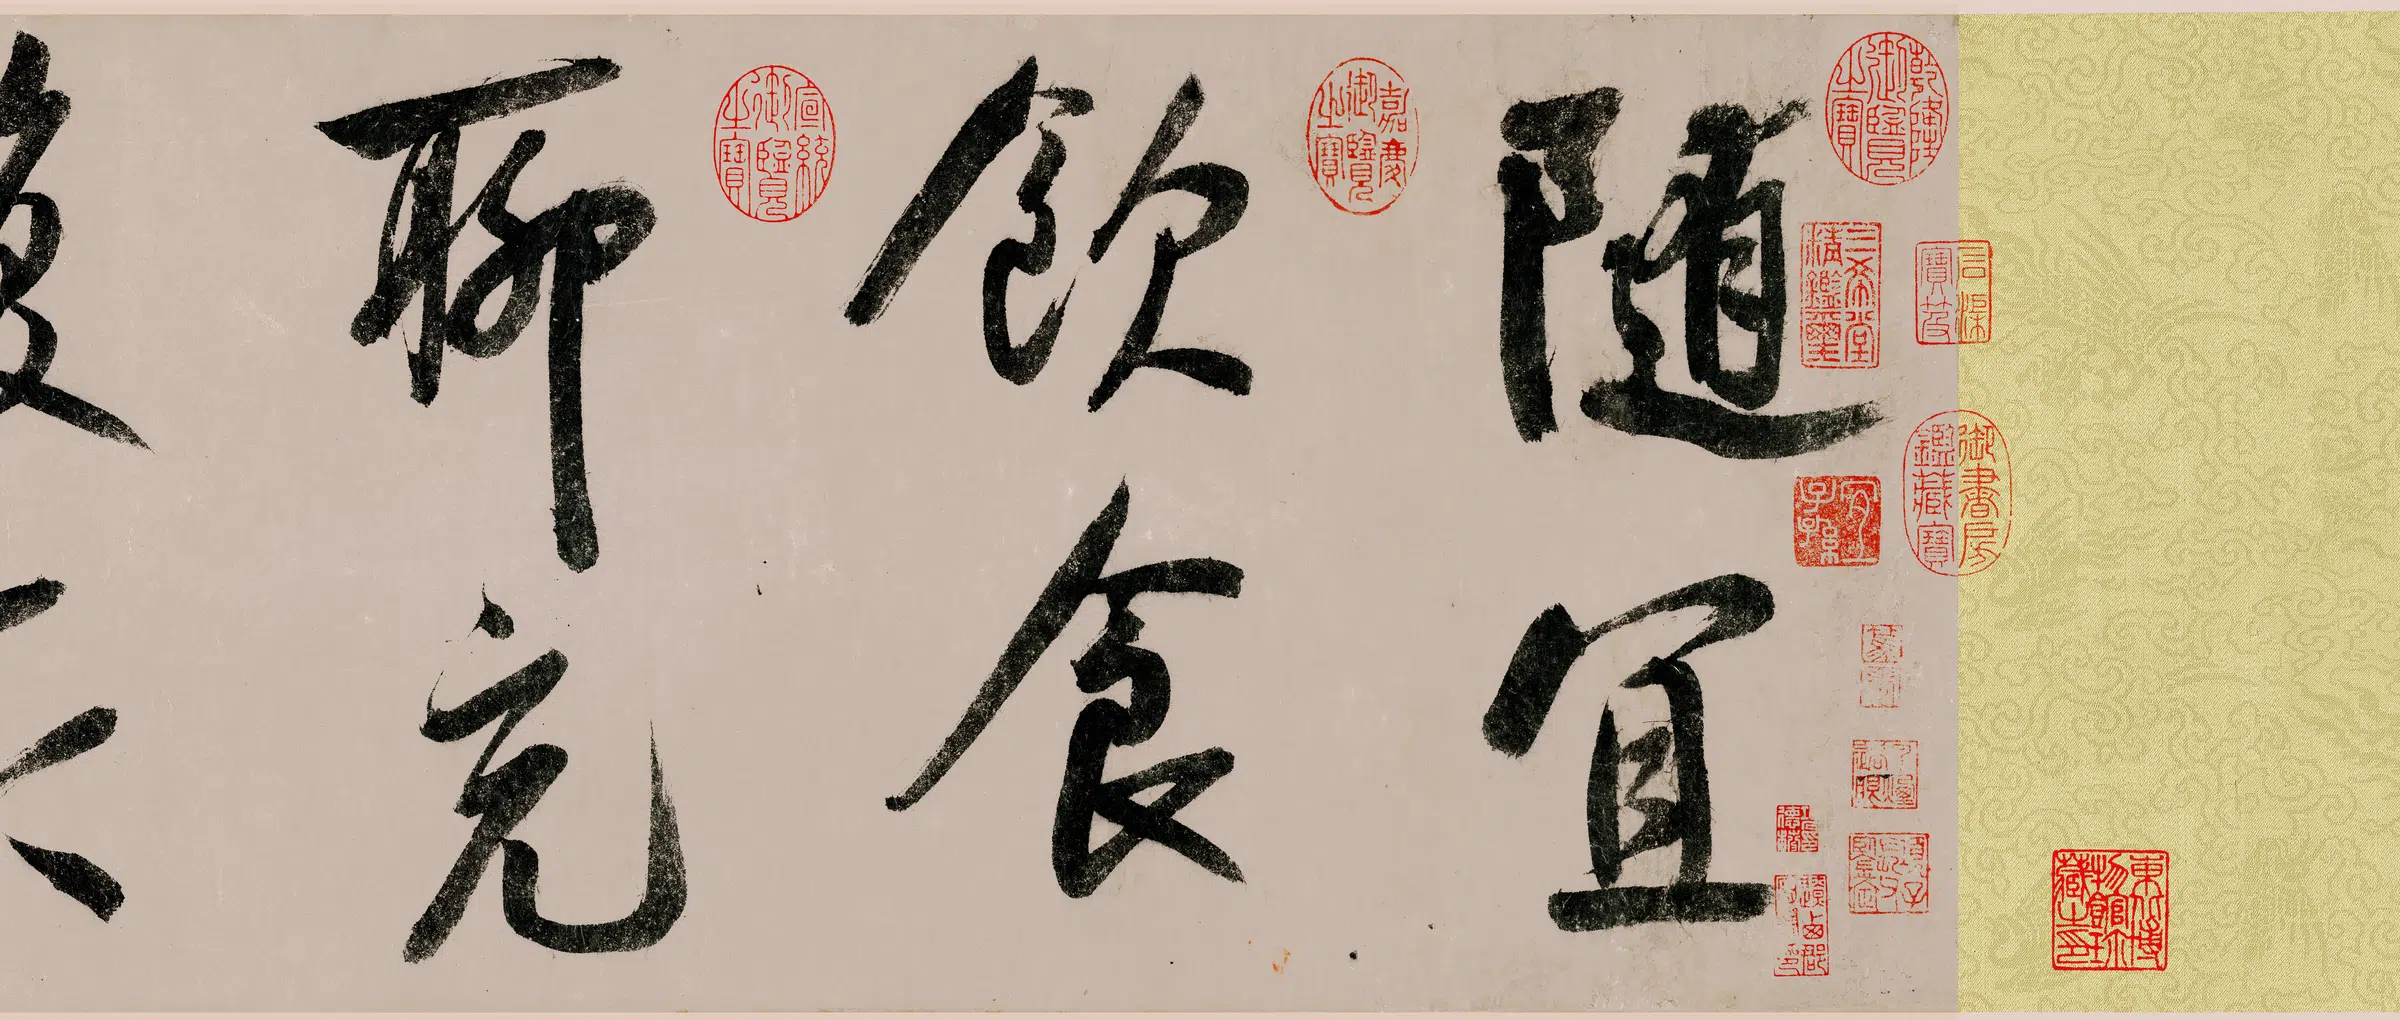 隨宜
飲食
聊充
腹
乾隆御覽之寶
三希堂精鑑璽
宜子孫
石渠寶笈
御書房鑑藏寶
嘉慶御覽之寶
宣統御覽之寶
東北博物館珍藏之印